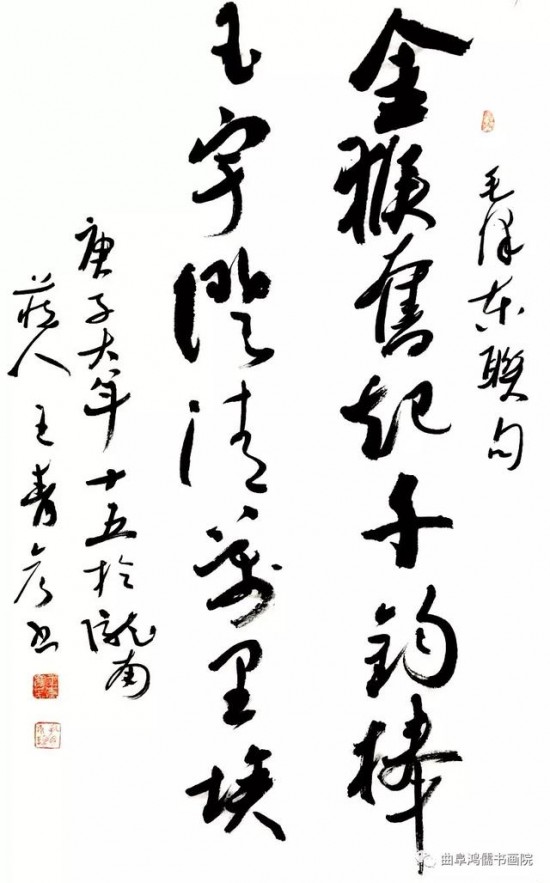 毛泽东聯句
金猴奮起千钧棒
玉宇澄清萬里埃
庚子大年十五於隴南
人王青彦书
曲阜鸿儒书画院